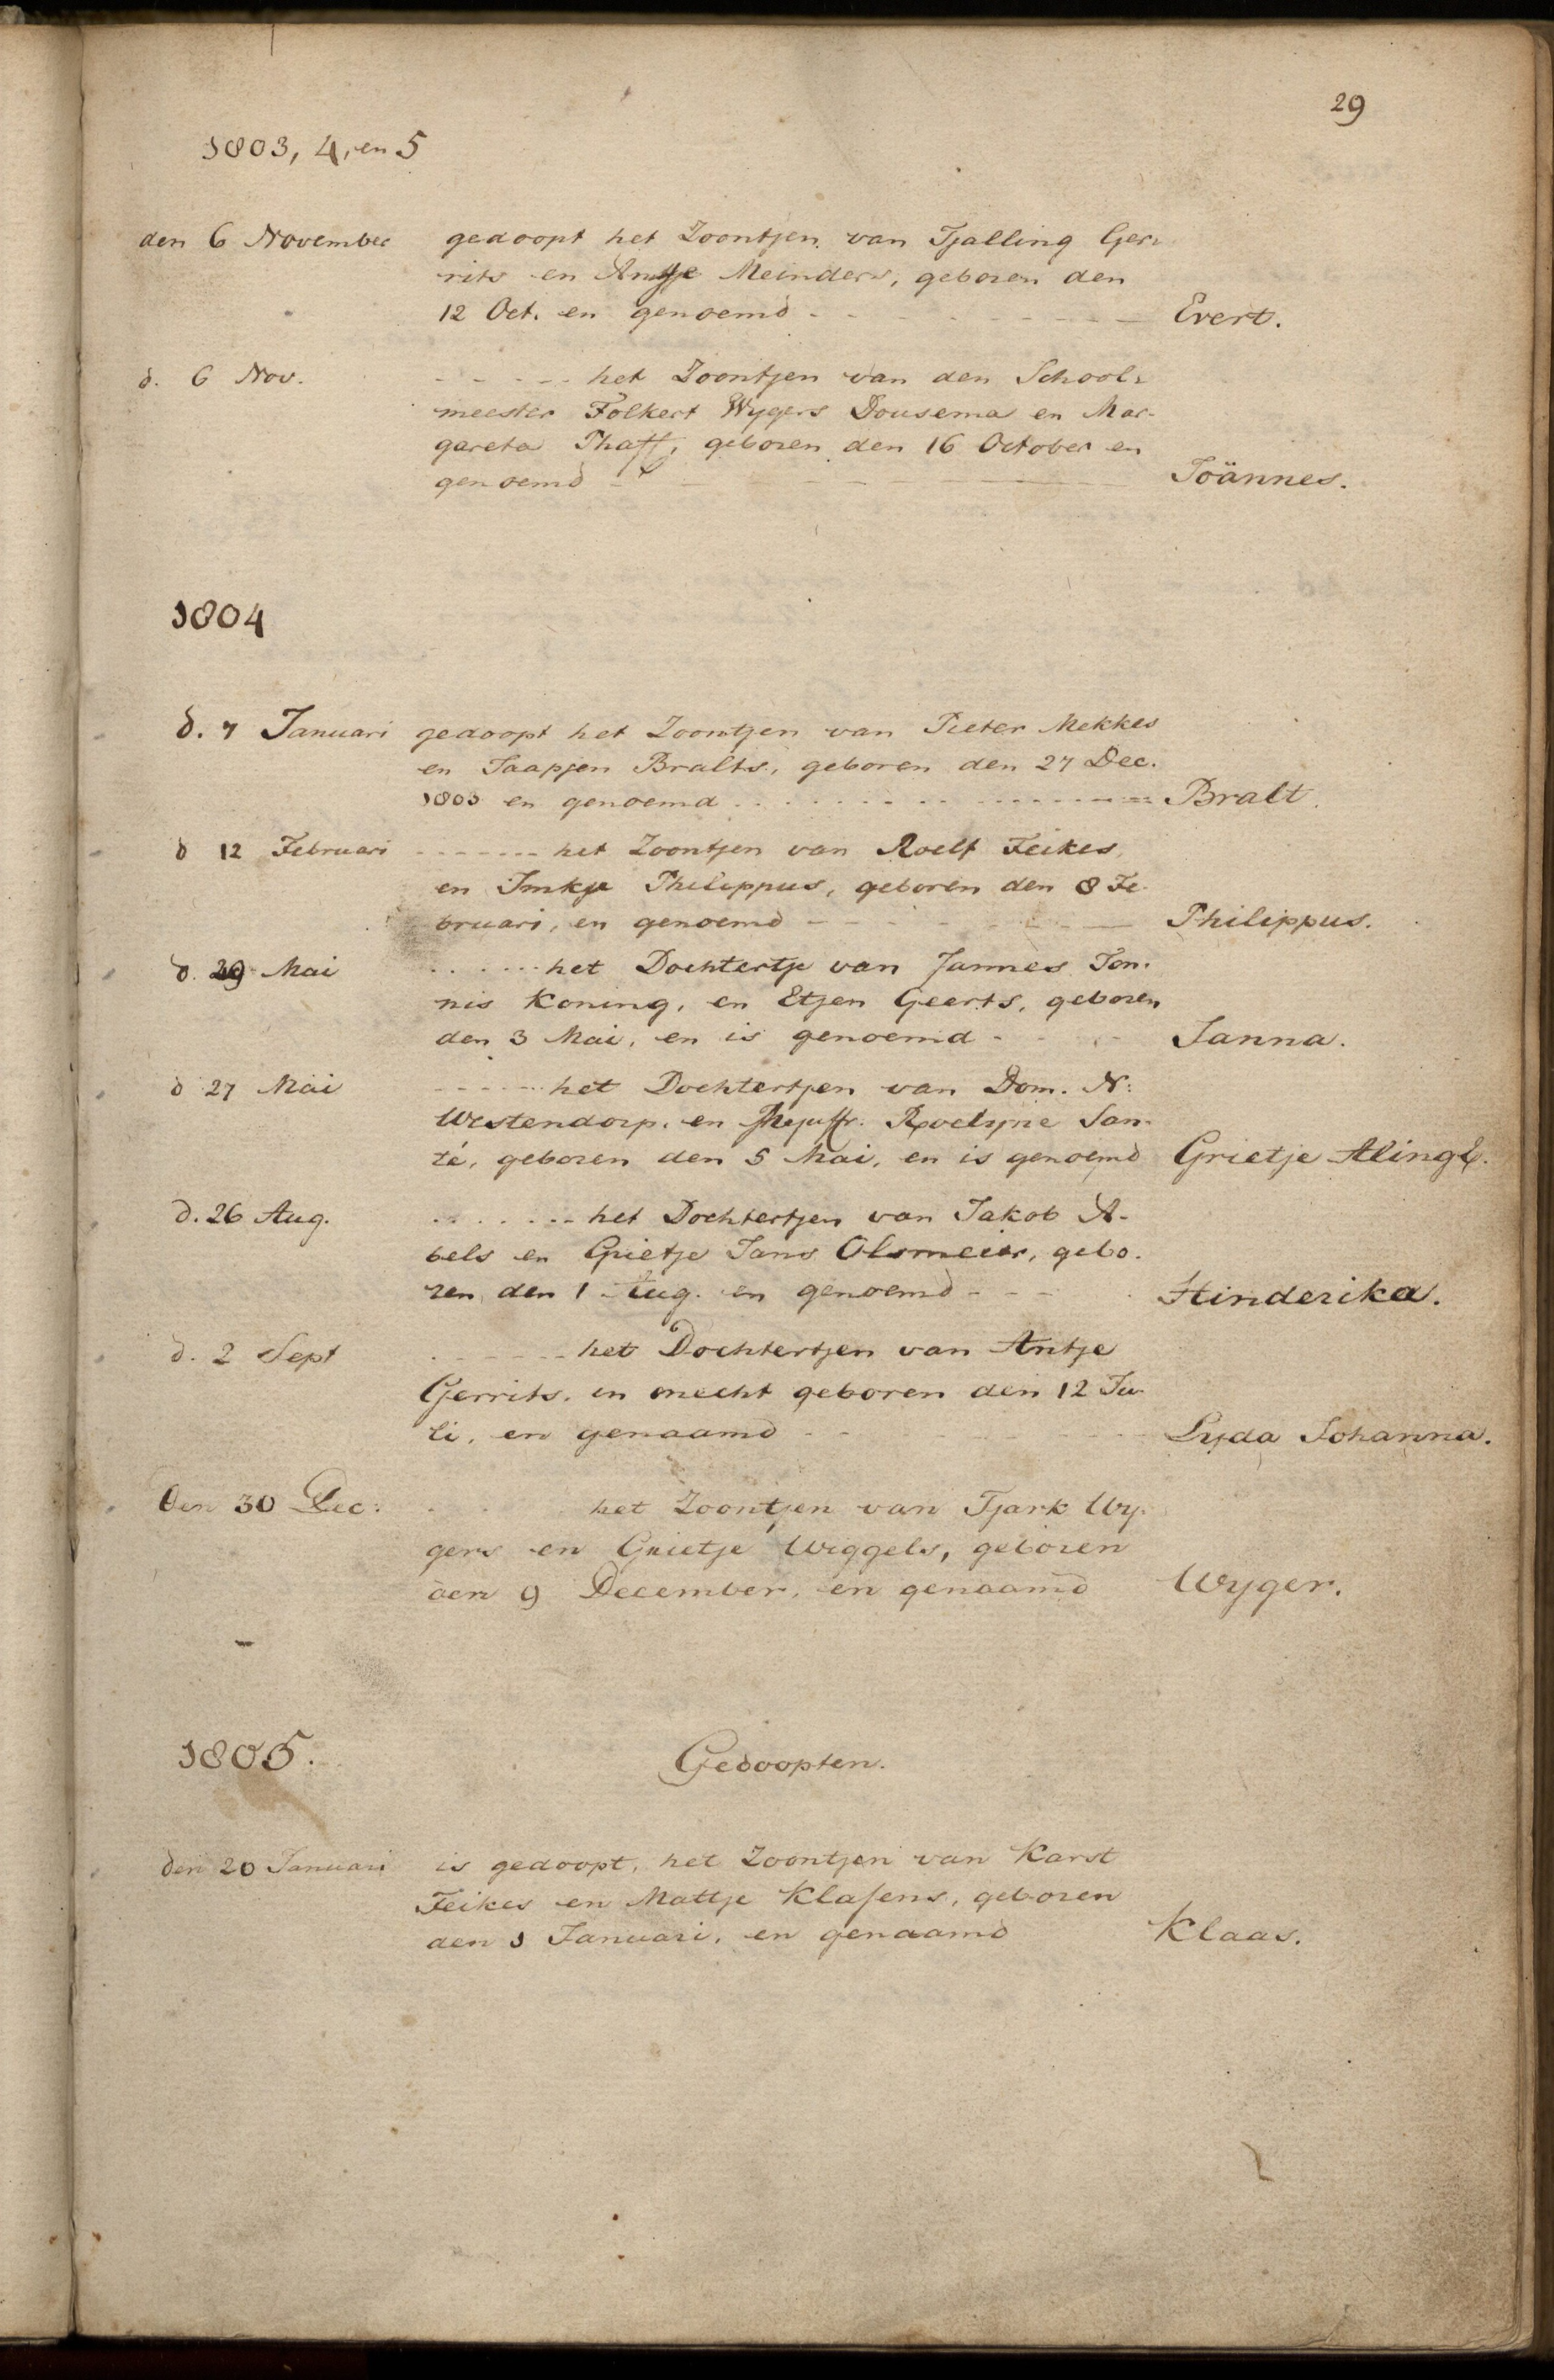 29
1803, 4, en 5
den 6 November gedoopt het Zoontjen van Tjalling Ger-
rits en Antje Meinders, geboren den
12 Oct. en genoemd - - - - - - - - - Evert.
d. 6 Nov. - - - - - het Zoontjen van den School-
meester Folkert Wygers Dousema en Mar-
gareta Thaff, geboren den 16 October en
genoemd - - - - - - Joännes.
1804
d. 7 Januari gedoopt het Zoontjen van Pieter Mekkes
en Jaapjen Bralts, geboren den 27 Dec.
1803 en genoemd . . . . . . . - - - - - - Bralt.
d 12 Februari - - - - - - het Zoontjen van Roelf Feikes,
en Imkje Philippus, geboren den 8 Fe-
bruari, en genoemd - - - - - - - Philippus.
d. 20 Mai . . . . . . het Dochtertje van Jannes Ton-
nis Koning, en Etjen Geerts, geboren
den 3 Mai, en is genoemd - - - Janna.
d 27 Mai - - - - - het Dochtertjen van Dom. N:
Westendorp. en Mejuffr. Roelyne San-
té, geboren den 5 Mai, en is genoemd Grietje Aling
d. 26 Aug. . . . . . . - het Dochtertjen van Jakob A-
bels en Grietje Jans Olsmeier, gebo-
ren den 1 Aug. en genoemd - - - Hinderika.
d. 2 Sept . - - - - - het Dochtertjen van Antje
Gerrits. in onecht geboren den 12 Ju-
li, en genaamd - - - - - Lyda Johanna.
den 30 Dec: . . . het Zoontjen van Tjark Wy-
gers en Grietje Wiggels, geboren
den 9 December, en genaamd Wyger.
1805. Gedoopten.
den 20 Januari is gedoopt, het Zoontjen van Karst
Feikes en Mattje Klasens, geboren
den 1 Januari, en genaamd Klaas.